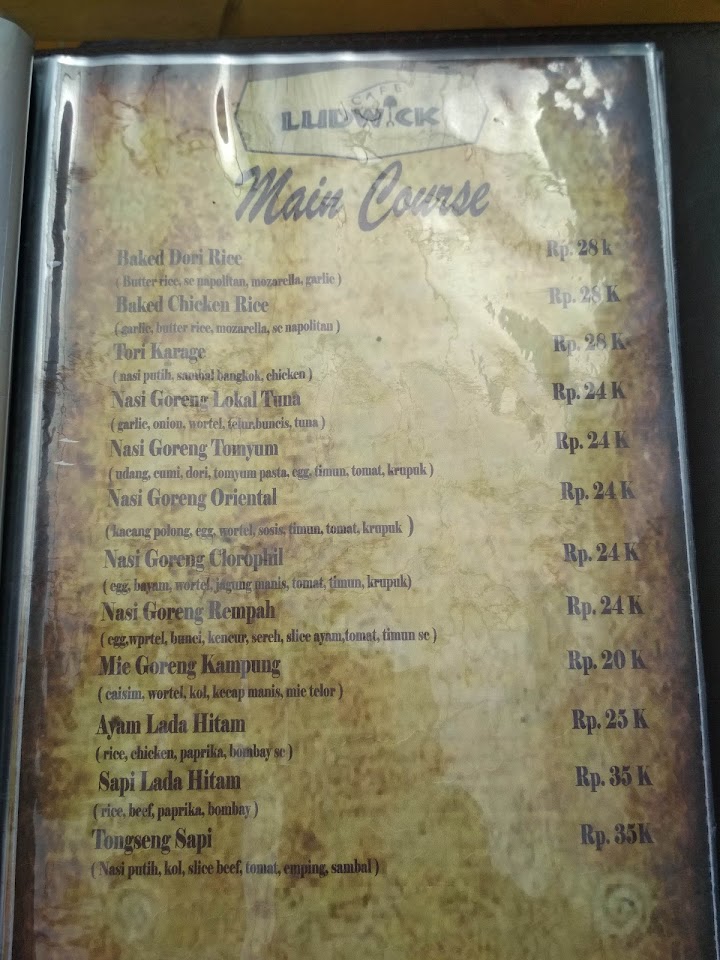 CAFE
LUDWICK
Main Course
Baked Dori Rice Rp. 28 k
( Butter rice, sc napolitan, mozarella, garlic )
Baked Chicken Rice Rp. 28 K
( garlic, butter rice, mozarella, sc napolitan )
Tori Karage Rp. 28 K
( nasi putih, sambal bangkok, chicken )
Nasi Goreng Lokal Tuna Rp. 24 K
( garlic, onion, wortel, telur,buncis, tuna )
Nasi Goreng Tomyum Rp. 24 K
( udang, cumi, dori, tomyum pasta, egg, timun, tomat, krupuk )
Nasi Goreng Oriental Rp. 24 K
( kacang polong, egg, wortel, sosis, timun, tomat, krupuk )
Nasi Goreng Clorophil Rp. 24 K
( egg, bayam, wortel, jagung manis, tomat, timun, krupuk)
Nasi Goreng Rempah Rp. 24 K
( egg,wprtel, bunci, kencur, sereh, slice ayam,tomat, timun sc )
Mie Goreng Kampung Rp. 20 K
( caisim, wortel, kol, kecap manis, mie telor )
Ayam Lada Hitam Rp. 25 K
( rice, chicken, paprika, bombay sc )
Sapi Lada Hitam Rp. 35 K
( rice, beef, paprika, bombay )
Tongseng Sapi Rp. 35K
( Nasi putih, kol, slice beef, tomat, emping, sambal )